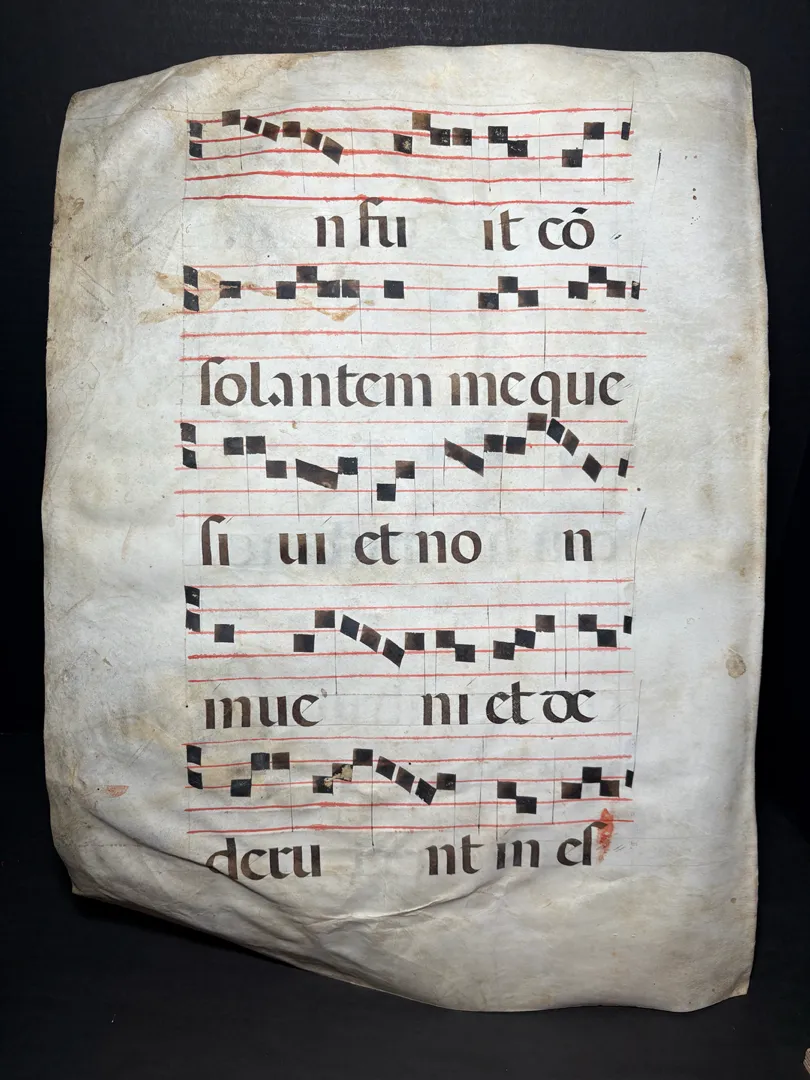 n fu it cō
solantem me que
si ui et no n
inue ni et de
deru nt in es